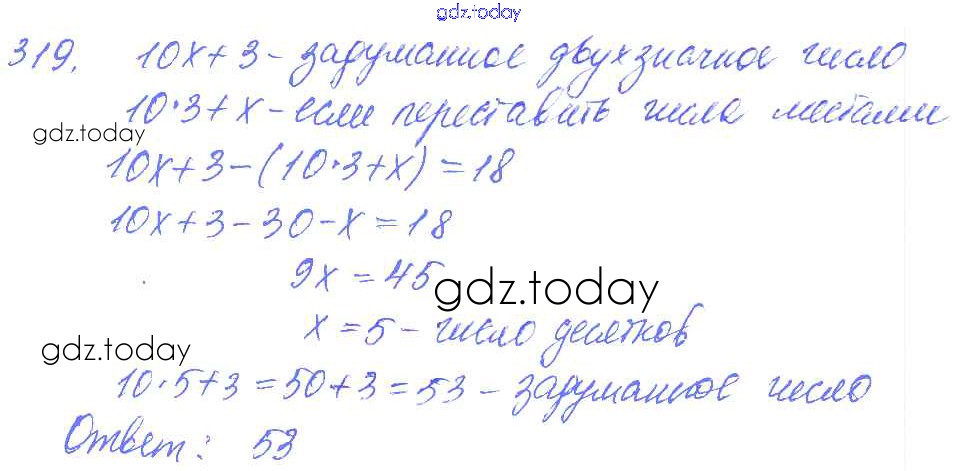 gdz.today
319. 10x+3 - задуманное двухзначное число
10·3+x - если переставить числа местами
gdz.today
10x+3-(10·3+x)=18
10x+3-30-x=18
9x=45
gdz.today
x=5 - число десятков
gdz.today
10·5+3=50+3=53 - задуманное число
Ответ: 53